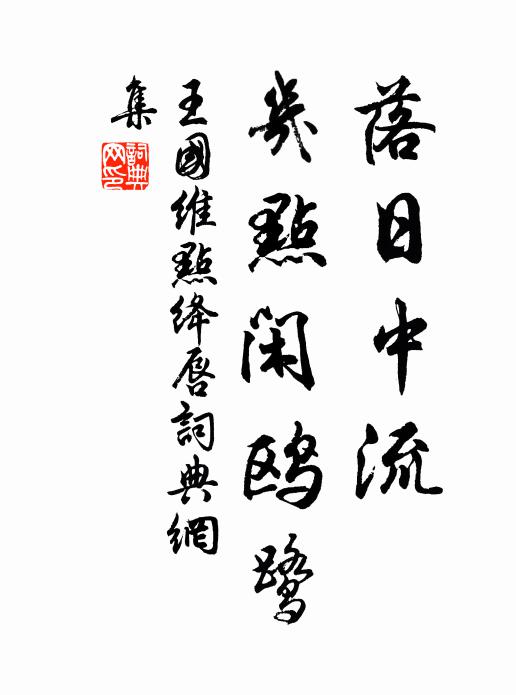 落日中流
幾點閑鸥鷺
王國維點绛唇詞典網
集
詞典網印